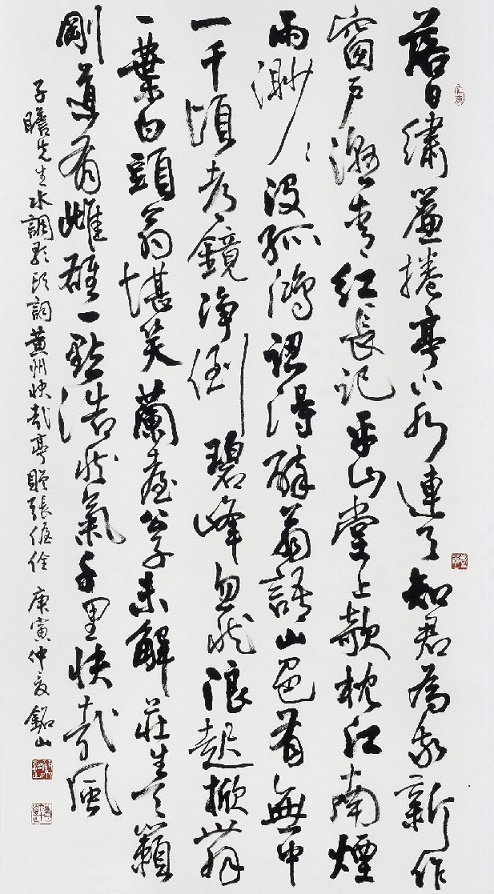 落日繡簾捲亭下水連空知君為我新作
窗戶濕青紅長記平山堂上欹枕江南煙
雨渺渺沒孤鴻認得醉翁語山色有無中
一千頃都鏡淨倒碧峰忽然浪起掀舞
一葉白頭翁堪笑蘭臺公子未解莊生天籟
剛道有雌雄一點浩然氣千里快哉風
子瞻先生水調歌頭詞黃州快哉亭贈張偓佺 庚寅仲夏 銘山